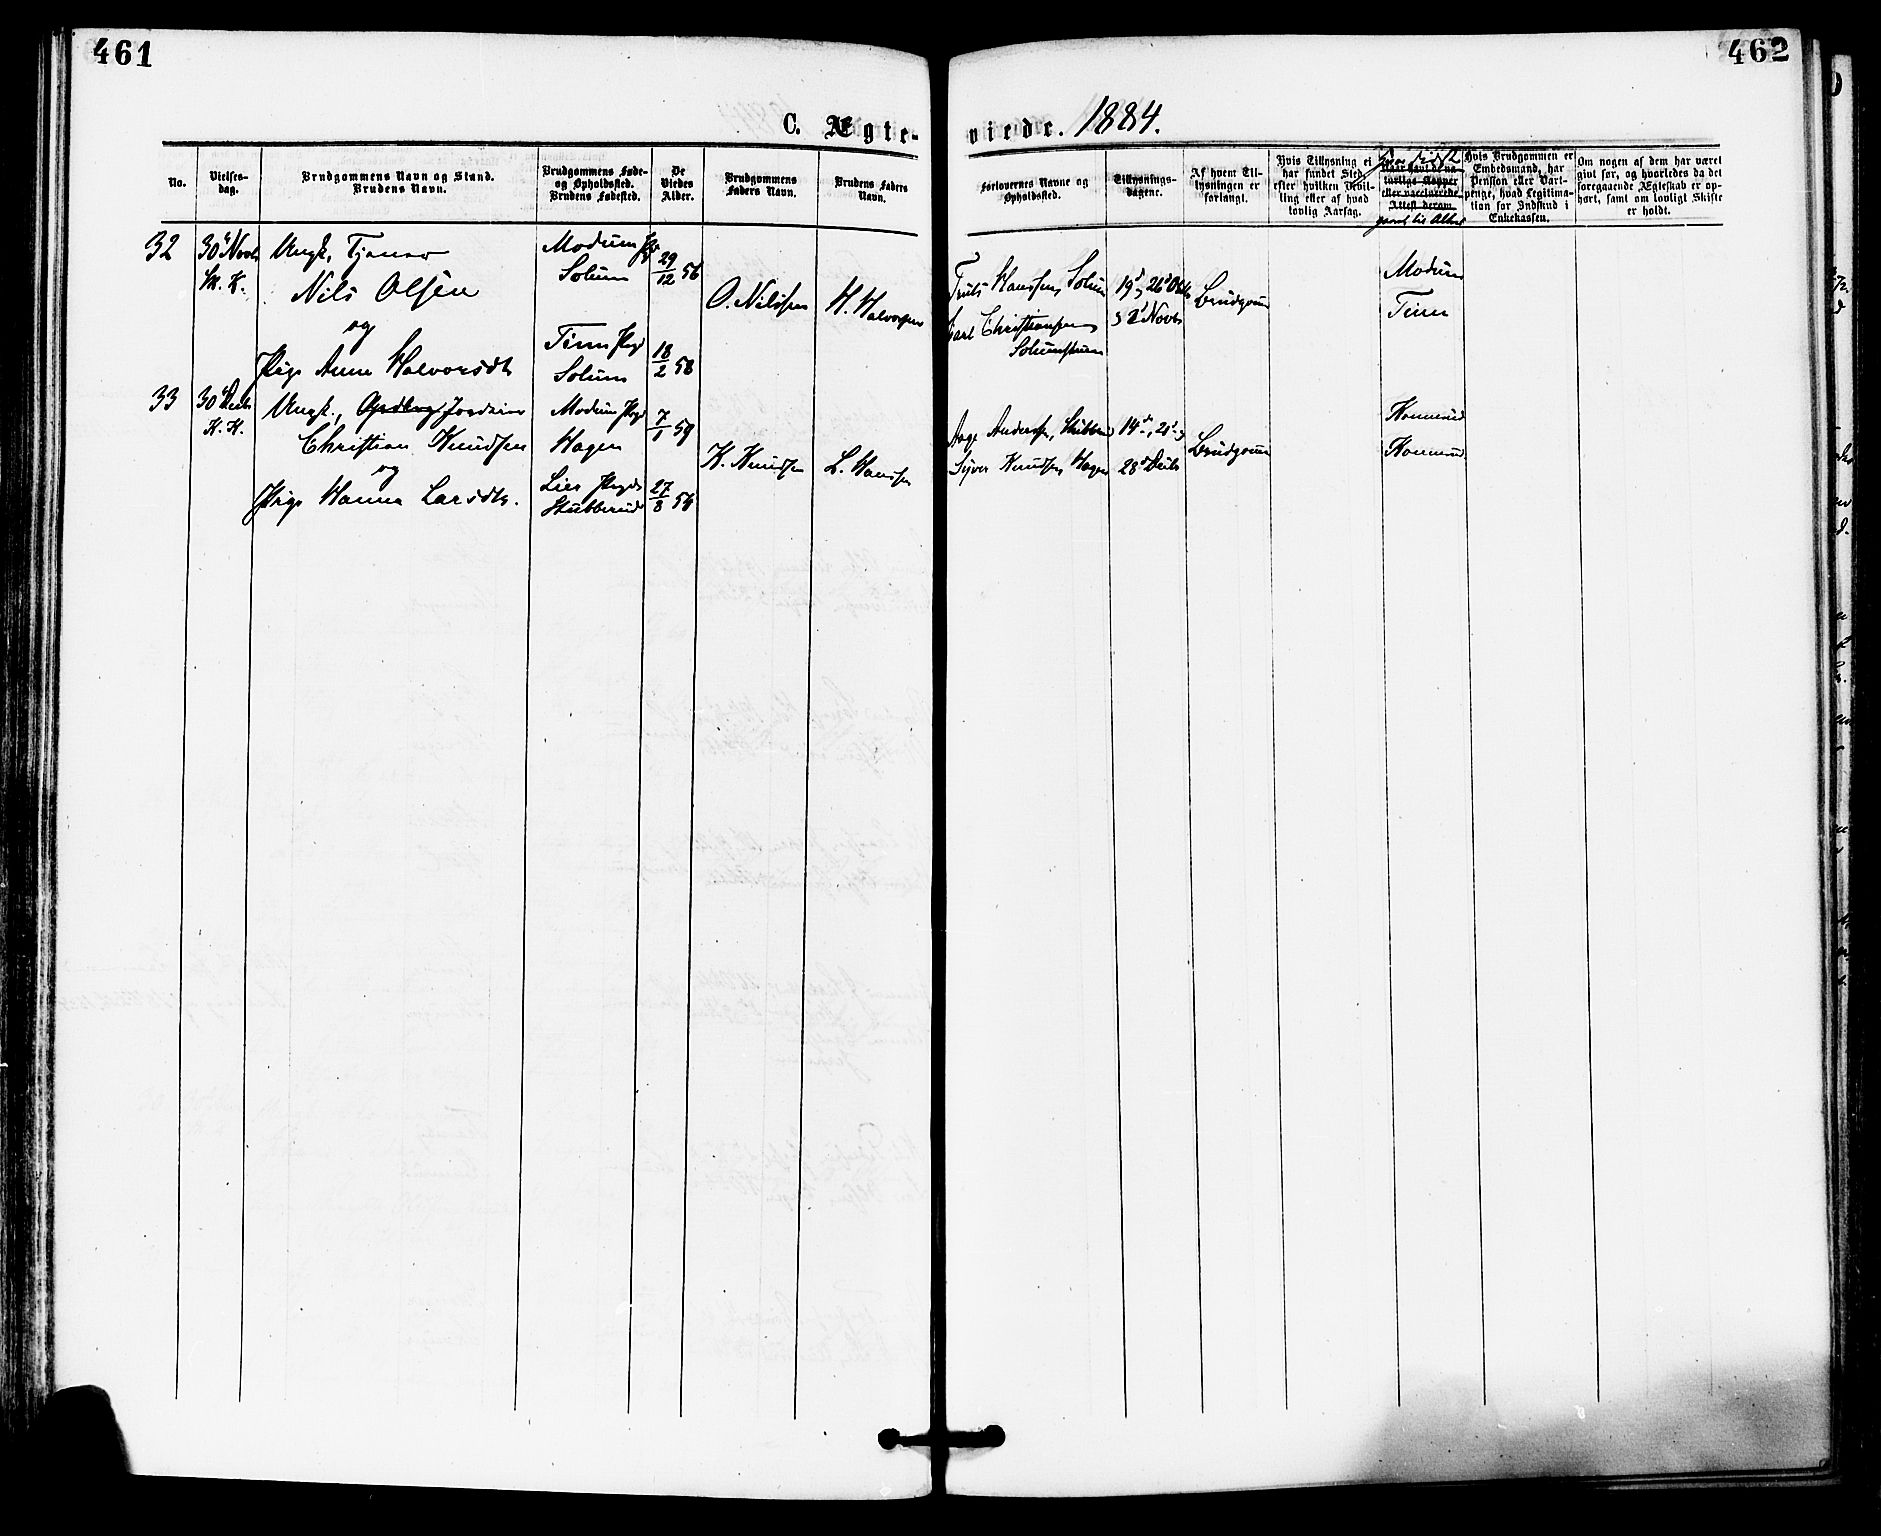 461
462
C. Ægte-
viede. 1884.
No.
Vielses-
dag.
Brudgommens Navn og Stand.
Brudens Navn.
Brudgommens Føde-
og Opholdssted.
Brudens Fødested.
De
Viedes
Alder.
Brudgommens
Faders Navn.
Brudens Faders
Navn.
Forlovernes Navne og
Opholdssted.
Tillysnings-
dagene.
Af hvem Til-
lysningen er
forlangt.
Hvis Tillysning ei
har fundet Sted,
efter hvilken Bevil-
ling eller af hvad
lovlig Aarsag.
Naar havt de na-
turlige Kopper
eller vaccinerede.
Attest derom.
Hvis Brudgommen er
Embedsmand, har
Pension eller Vart-
penge, hvad Legitima-
tion for Indskud i
Enkekassen.
Om nogen af dem har været
gift før, og hvorledes da det
foregaaende Ægteskab er op-
hørt, samt om lovligt Skifte
er holdt.
32
30 Novb
Ungk. Tjener
Nils Olsen
og
Pige Anne Halvorsdt
Modum
Solum
Tinn
Solum
29/12 56
18/2 58
O. Nilssen
H. Halvorsen
Truls Hanssen, Solum
Carl Christiansen
19d, 26d Octb
2d Novb
Brudgom
Modum
Tinn
33
30 Decb
K. K.
Ungk.,
Christian Knudsen
og
Pige Hanna Larsdtr.
Modum
Hagen
Lier
Stubberud
7/1 59
27/8 56
K. Knudsen
L. Hanssen
Aage Andersen, Stubberud
Syver Knudsen Hagen
14d, 21d
28d Decb
Brudgom